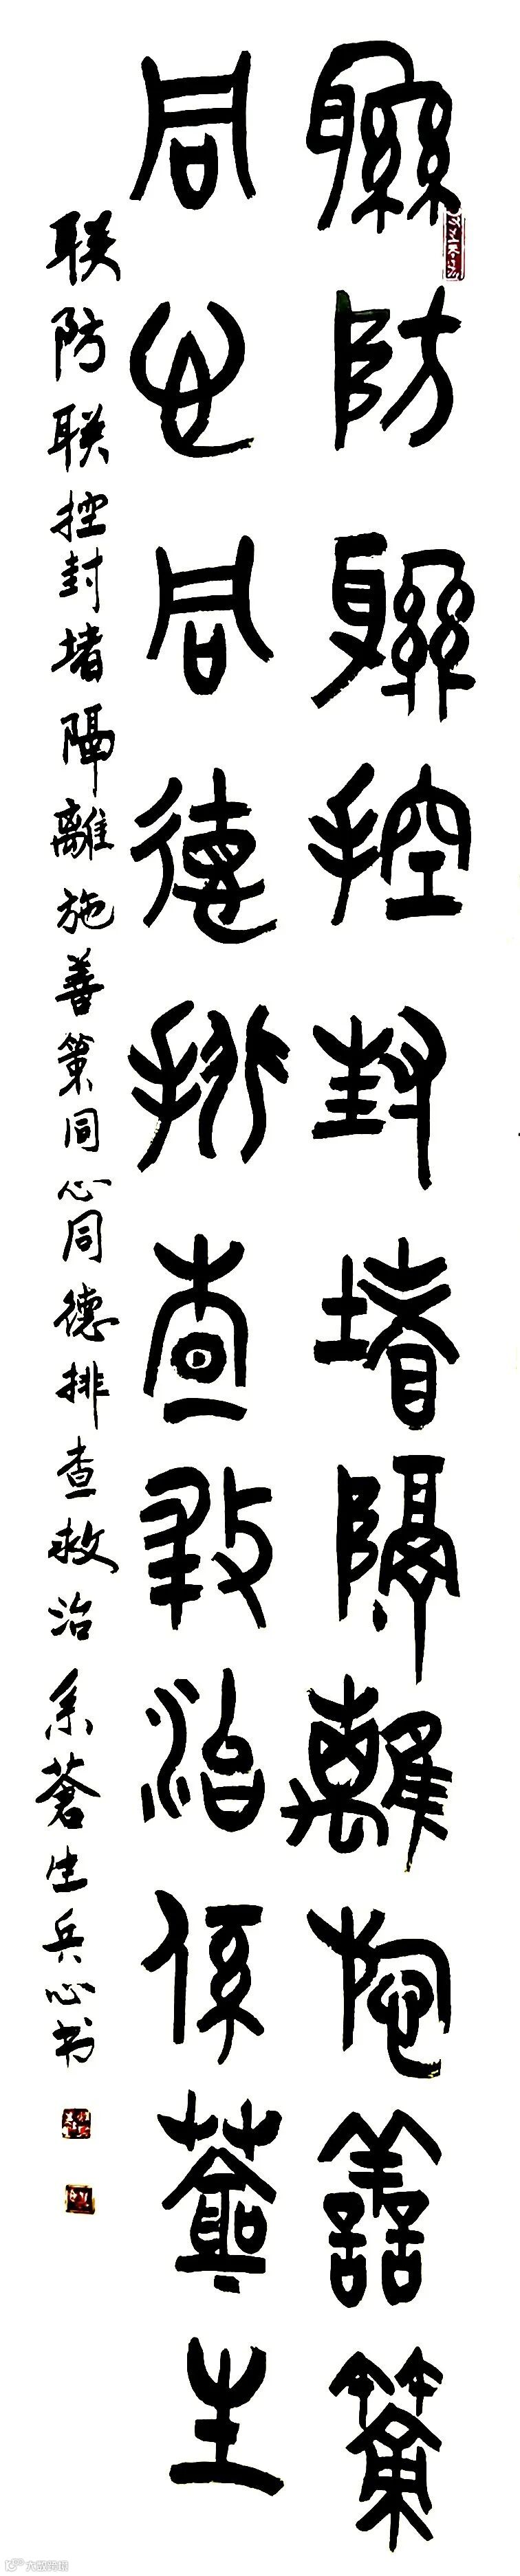 聯防聯控封堵隔離施善策
同心同德排查救治係蒼生
联防联控封堵隔離施善策同心同德排查救治系蒼生兵心书